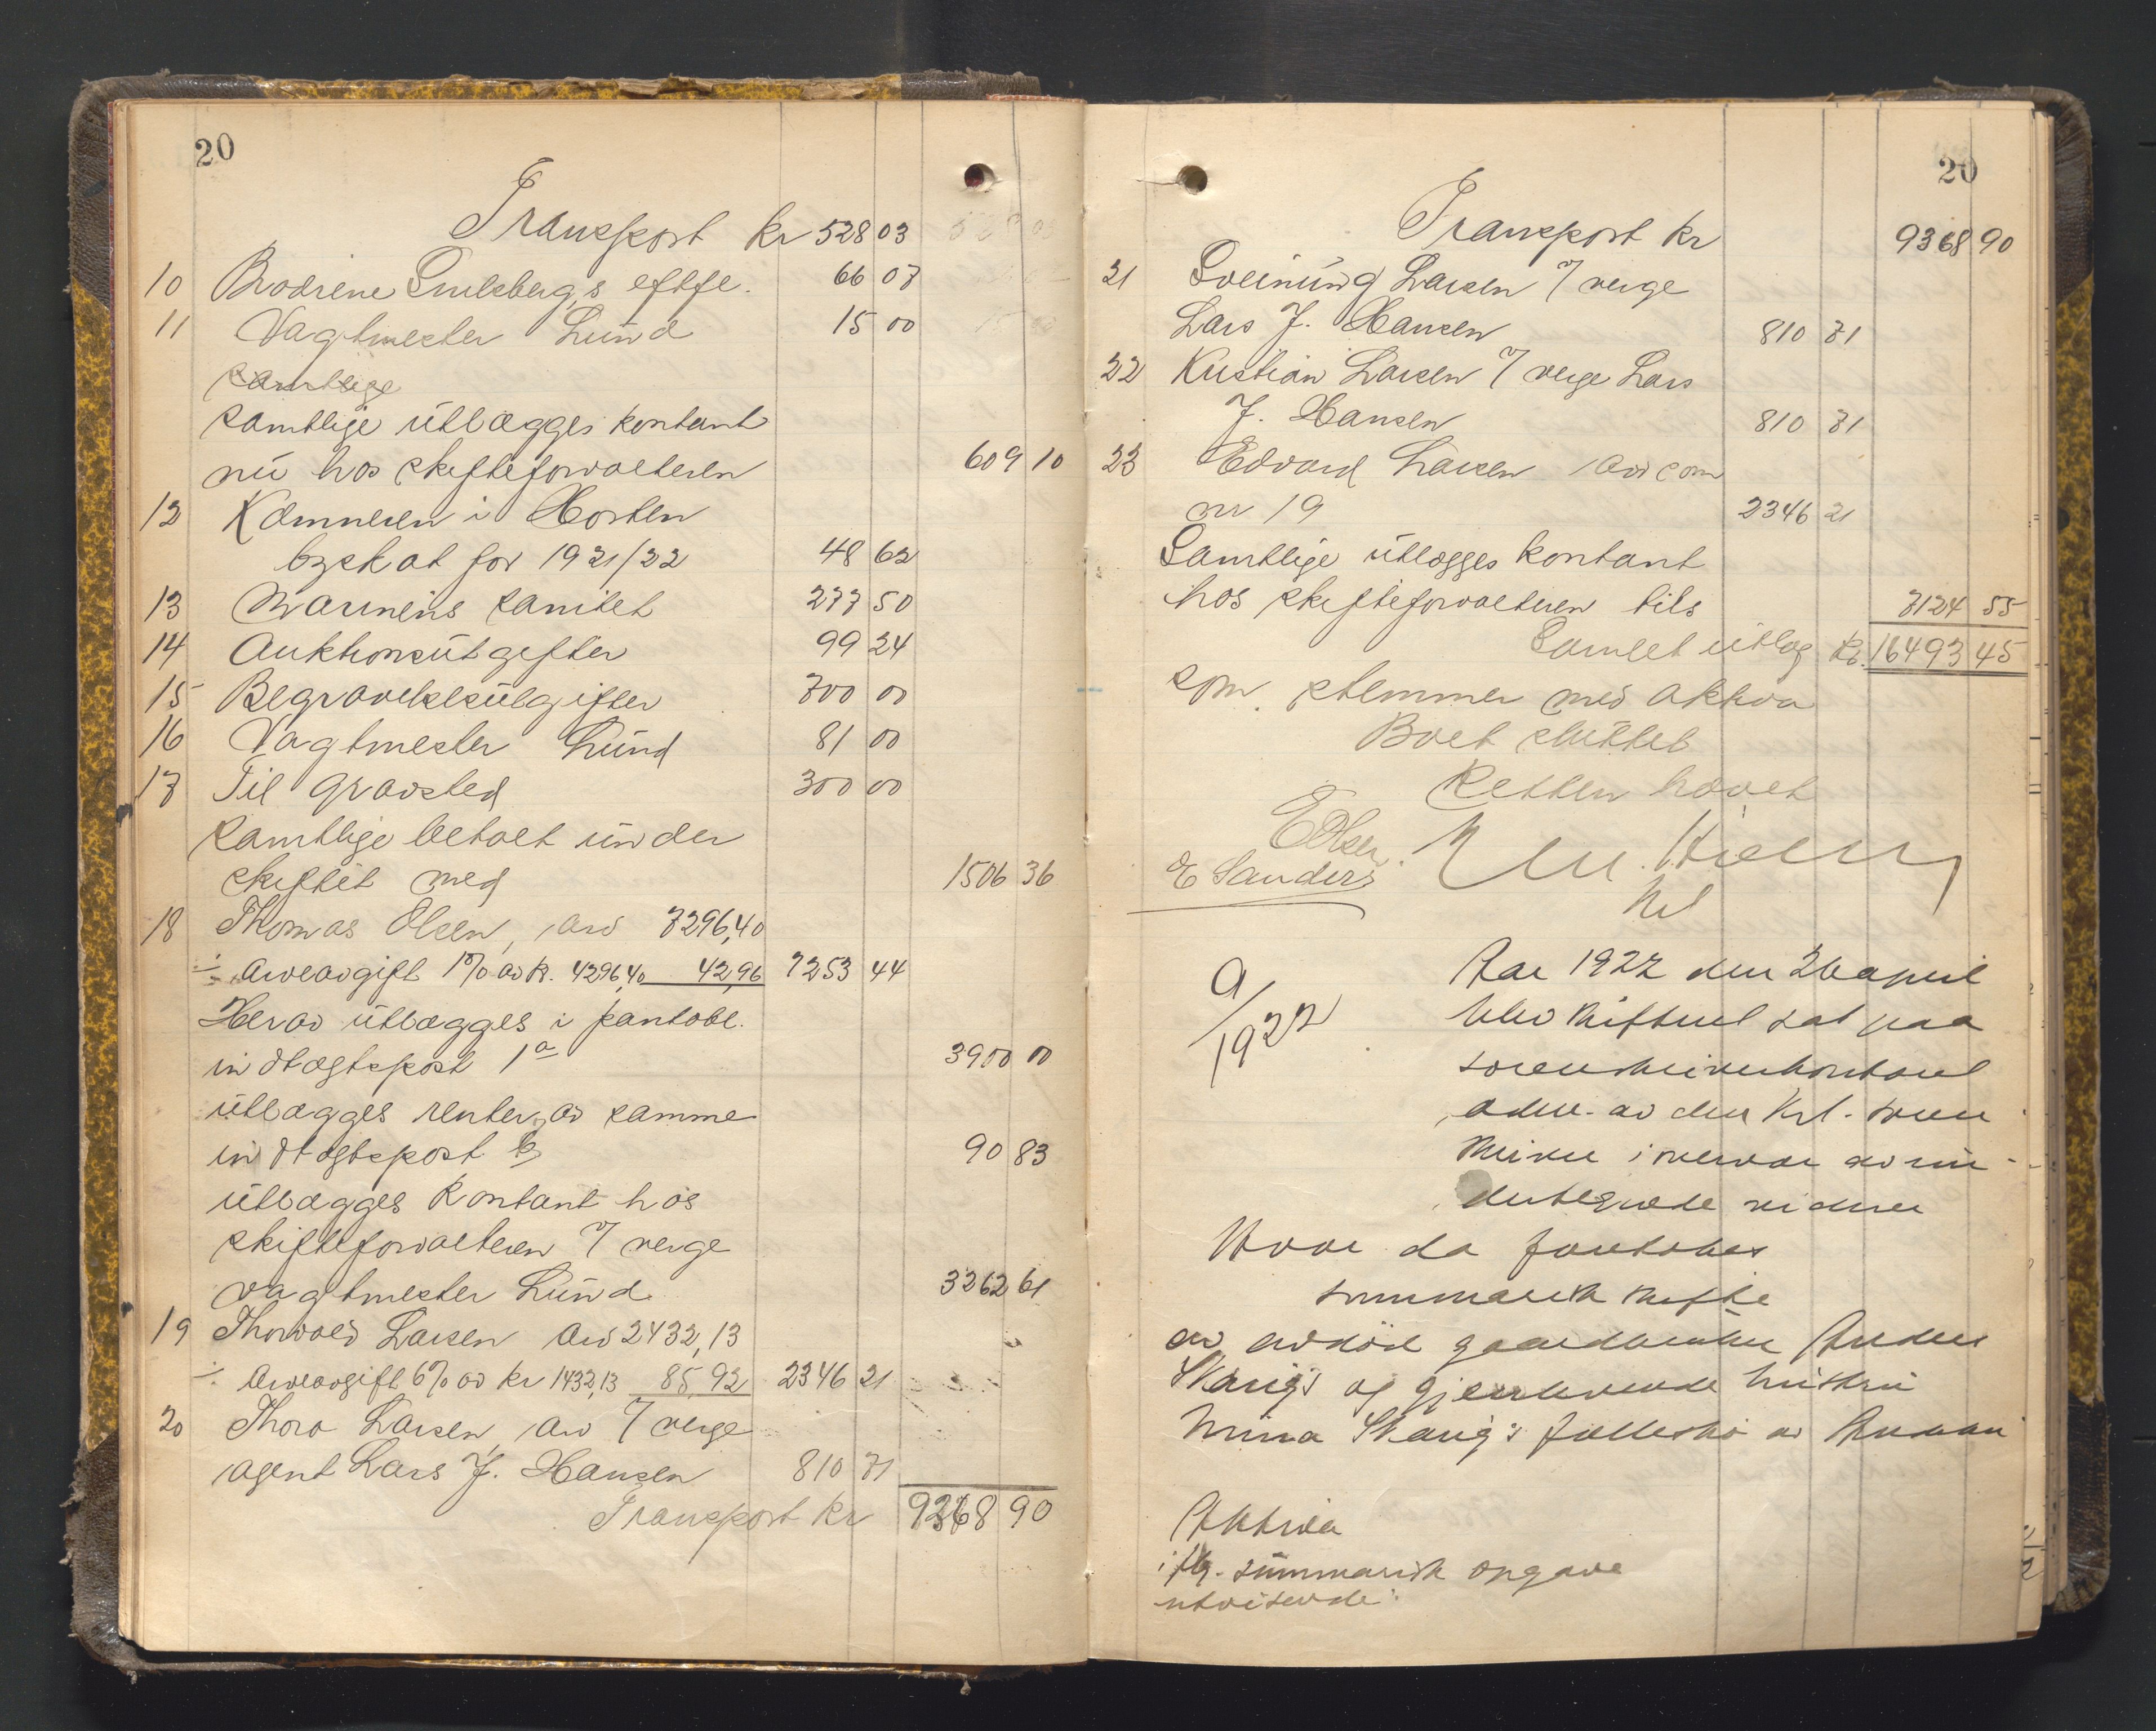 20
Transport kr 528 03
10 Brødrene Smebergs eftfl. 66 07
11 Vagtmester Lund 15 00
samtlige
samtlige utlægges kontant
nu hos skifteforvalteren 609 10
12 Kæmneren i Horten
byskat for 1921/22 48 62
13 Marinens sanitet 277 50
14 Auktionsutgifter 99 24
15 Begravelsesutgifter 700 00
16 Vagtmester Lund 81 00
17 Til gravsted 300 00
samtlige betalt under
skiftet med 1506 36
18 Thomas Olsen, arv 7296,40
÷ Arveavgift 1% av kr. 4296,40 42,96 7253 44
Herav utlægges i pantobl.
indtægtspost 1a 3900 00
utlægges renter av samme
indtægtspost b 90 83
utlægges kontant hos
skifteforvalteren v/ verge
vagtmester Lund 3262 61
19 Thorvald Larsen arv 2432,13
÷ Arveavgift 6% av kr 1432,13 85,92 2346 21
20 Thora Larsen, arv v/ verge
agent Lars J. Hansen 810 71
Transport kr 9368 90
20
Transport kr 9368 90
21 Sveinung Larsen v/ verge
Lars J. Hansen 810 71
22 Kristian Larsen v/ verge Lars
J. Hansen 810 71
23 Edvard Larsen arv som
nr 19 2346 21
Samtlige utlægges kontant
hos skifteforvalteren tils 7124 55
Samlet utlæg kr. 16493 45
som stemmer med aktiva
Boet sluttet
Retten hævet
E Olsen.
E Sanders
9/1922
Aar 1922 den 26 april
blev skifteret sat paa
sorenskriverkontoret
adm. av den kst. soren
skriver i nærvær av un-
dertegnede vidner
Hvor da foretokes
summarisk skifte
av avdøde gaardbruker Anders
Skaug's og gjenlevende hustru
Mina Skaug's fællesbo av
Aktiva
iflg. summarisk opgave
utvisende: